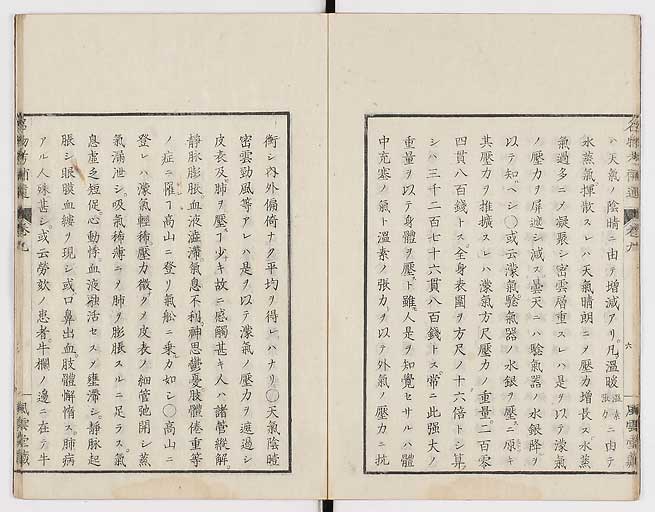 ハ天氣ノ陰晴ニ由テ増減アリ凡溫暖溫素張力ニ由テ
水蒸氣揮散スレハ天氣晴朗ニノ壓力增長ス水蒸
氣過多ニノ凝聚シ密雲層重スレハ是ヲ以テ濛氣
ノ壓力ヲ屏遮シ減ス曇天ニハ驗氣器ノ水銀降ヲ
以テ知ベシ〇或云濛氣驗氣器ノ水銀ヲ壓ニ原キ
其壓力ヲ推擴スレハ濛氣方尺壓力ノ重量二百零
四貫八百錢トス全身表圍ヲ方尺ノ十六倍トシ算
シハ三千二百七十六貫八百錢トス常ニ此强大ノ
重量ヲ以テ身體ヲ壓ト雖人是ヲ知覺セサルハ體
中充塞ノ氣ト溫素ノ張力ヲ以テ外氣ノ壓力ニ抗
衡シ内外偏倚ナク平均ヲ得レハナリ〇天氣陰曀
密雲勁風等アレハ是ヲ以テ濛氣ノ壓力ヲ遮過シ
皮表及肺ヲ壓ヿ少キ故ニ感觸甚キ人ハ諸管縱解
靜脉膨脹血液澁滯氣息不利神思鬱憂肢體倦重等
ノ症ニ罹ヿ高山ニ登リ氣舩ニ乘カ如シ〇高山ニ
登レハ濛氣輕稀壓力微グメ皮表ノ細管弛開シ蒸
氣漏泄シ吸氣稀薄ニヲ肺ヲ膨脹スルニ足ラス氣
息虚乏短促心動悸血液融活セスヲ壅滯シ靜脉起
脹シ眼膜血縷ヲ現シ或口鼻出血肢體解惰ス肺病
アル人殊甚シ或云勞欬ノ患者牛欄ノ邊ニ在テ牛
卷九
六
風雲堂藏